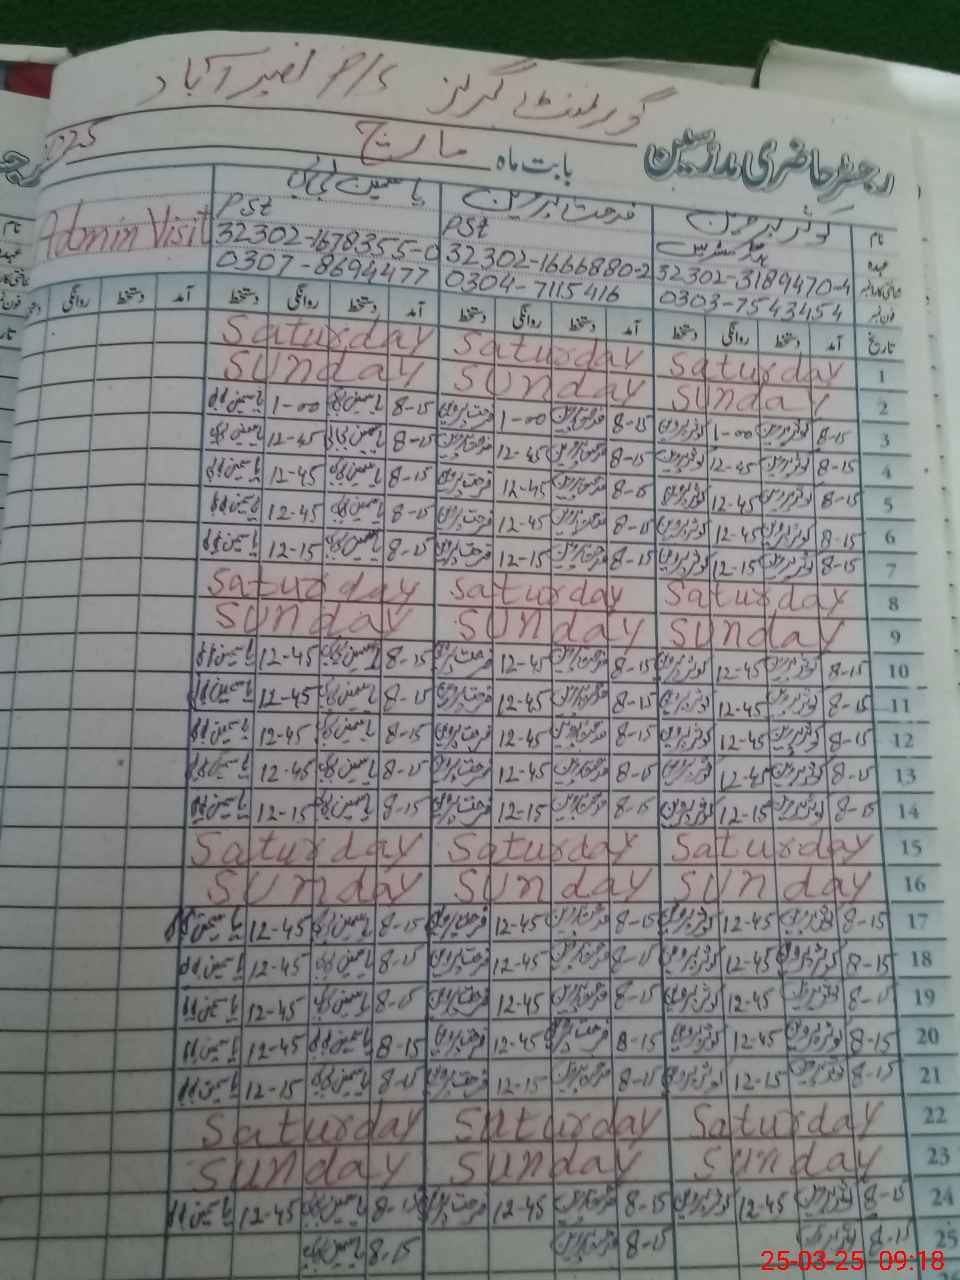 گورنمنٹ گرلز P/S نصیر آباد
رجسٹر حاضری مدرسین بابت ماہ مارچ 2025
نام کوثر پروین فرحت پروین یاسمین بی بی Admin Visit
عہدہ ہیڈ مسٹریس PSt PSt
32302-3189470-4 32302-1666880-2 32302-1678355-0
0303-7543454 0304-7115416 0307-8694477
تاریخ آمد دستخط روانگی دستخط آمد دستخط روانگی دستخط آمد دستخط روانگی دستخط آمد دستخط روانگی دستخط
1 Saturday Saturday Saturday
2 Sunday Sunday Sunday
3 8-15 کوثر پروین 1-00 کوثر پروین 8-15 فرحت پروین 1-00 فرحت پروین 8-15 یاسمین بی بی 1-00 یاسمین بی بی
4 8-15 کوثر پروین 12-45 کوثر پروین 8-15 فرحت پروین 12-45 فرحت پروین 8-15 یاسمین بی بی 12-45 یاسمین بی بی
5 8-15 کوثر پروین 12-45 کوثر پروین 8-15 فرحت پروین 12-45 فرحت پروین 8-15 یاسمین بی بی 12-45 یاسمین بی بی
6 8-15 کوثر پروین 12-45 کوثر پروین 8-15 فرحت پروین 12-45 فرحت پروین 8-15 یاسمین بی بی 12-45 یاسمین بی بی
7 8-15 کوثر پروین 12-15 کوثر پروین 8-15 فرحت پروین 12-15 فرحت پروین 8-15 یاسمین بی بی 12-15 یاسمین بی بی
8 Saturday Saturday Saturday
9 Sunday Sunday Sunday
10 8-15 کوثر پروین 12-45 کوثر پروین 8-15 فرحت پروین 12-45 فرحت پروین 8-15 یاسمین بی بی 12-45 یاسمین بی بی
11 8-15 کوثر پروین 12-45 کوثر پروین 8-15 فرحت پروین 12-45 فرحت پروین 8-15 یاسمین بی بی 12-45 یاسمین بی بی
12 8-15 کوثر پروین 12-45 کوثر پروین 8-15 فرحت پروین 12-45 فرحت پروین 8-15 یاسمین بی بی 12-45 یاسمین بی بی
13 8-15 کوثر پروین 12-45 کوثر پروین 8-15 فرحت پروین 12-45 فرحت پروین 8-15 یاسمین بی بی 12-45 یاسمین بی بی
14 8-15 کوثر پروین 12-15 کوثر پروین 8-15 فرحت پروین 12-15 فرحت پروین 8-15 یاسمین بی بی 12-15 یاسمین بی بی
15 Saturday Saturday Saturday
16 Sunday Sunday Sunday
17 8-15 کوثر پروین 12-45 کوثر پروین 8-15 فرحت پروین 12-45 فرحت پروین 8-15 یاسمین بی بی 12-45 یاسمین بی بی
18 8-15 کوثر پروین 12-45 کوثر پروین 8-15 فرحت پروین 12-45 فرحت پروین 8-15 یاسمین بی بی 12-45 یاسمین بی بی
19 8-15 کوثر پروین 12-45 کوثر پروین 8-15 فرحت پروین 12-45 فرحت پروین 8-15 یاسمین بی بی 12-45 یاسمین بی بی
20 8-15 کوثر پروین 12-45 کوثر پروین 8-15 فرحت پروین 12-45 فرحت پروین 8-15 یاسمین بی بی 12-45 یاسمین بی بی
21 8-15 کوثر پروین 12-15 کوثر پروین 8-15 فرحت پروین 12-15 فرحت پروین 8-15 یاسمین بی بی 12-15 یاسمین بی بی
22 Saturday Saturday Saturday
23 Sunday Sunday Sunday
24 8-15 کوثر پروین 12-45 کوثر پروین 8-15 فرحت پروین 12-45 فرحت پروین 8-15 یاسمین بی بی 12-45 یاسمین بی بی
25 8-15 کوثر پروین 8-15 فرحت پروین 8-15 یاسمین بی بی
25-03-25 09:18